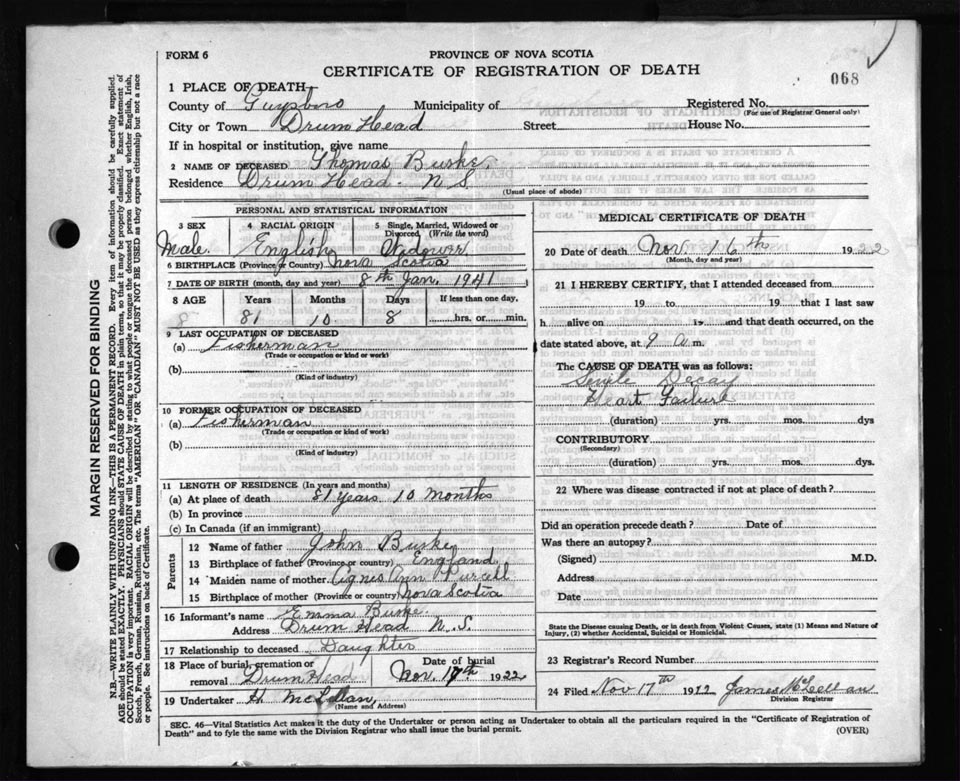 FORM 6
PROVINCE OF NOVA SCOTIA
CERTIFICATE OF REGISTRATION OF DEATH
068
1 PLACE OF DEATH
County of Guysboro Municipality of Registered No.
(For use of Registrar General only)
City or Town Drum Head Street House No.
If in hospital or institution, give name
2 NAME OF DECEASED Thomas Burke
Residence Drum Head - N S.
(Usual place of abode)
PERSONAL AND STATISTICAL INFORMATION
3 SEX 4 RACIAL ORIGIN 5 Single, Married, Widowed or Divorced, (Write the word)
Male. English Widower
6 BIRTHPLACE (Province or Country) Nova Scotia
7 DATE OF BIRTH (month, day and year) 8th Jan. 1941
8 AGE Years Months Days If less than one day,
81 10 8 hrs. or min.
9 LAST OCCUPATION OF DECEASED
(a) Fisherman
(Trade or occupation or kind or work)
(b)
(Kind of industry)
10 FORMER OCCUPATION OF DECEASED
(a) Fisherman
(Trade or occupation or kind or work)
(b)
(Kind of industry)
11 LENGTH OF RESIDENCE (In years and months)
(a) At place of death 81 years 10 months
(b) In province
(c) In Canada (if an immigrant)
Parents
12 Name of father John Burke
13 Birthplace of father (Province or country) England
14 Maiden name of mother Agnes Ann Purcell
15 Birthplace of mother (Province or country) Nova Scotia
16 Informant's name Emma Burke.
Address Drum Head N. S.
17 Relationship to deceased Daughter
18 Place of burial, cremation or removal Drum Head Date of burial Nov. 17th 1922
19 Undertaker H McLellan
(Name and Address)
MEDICAL CERTIFICATE OF DEATH
20 Date of death Nov. 16th 1922
(Month, day and year)
21 I HEREBY CERTIFY, that I attended deceased from
19 to 19 that I last saw
h alive on 19 and that death occurred, on
date stated above, at 9 a m.
The CAUSE OF DEATH was as follows:
Senile Decay
Heart Failure
(duration) yrs. mos. dys
CONTRIBUTORY
(Secondary)
(duration) yrs. mos. dys.
22 Where was disease contracted if not at place of death?
Did an operation precede death? Date of
Was there an autopsy?
(Signed) M.D.
Address
Date
State the Disease causing Death, or in death from Violent Causes, state (1) Means and Nature of
Injury, (2) whether Accidental, Suicidal or Homicidal.
23 Registrar's Record Number
24 Filed Nov 17th 1922 James McLellan
Division Registrar
SEC. 46—Vital Statistics Act makes it the duty of the Undertaker or person acting as Undertaker to obtain all the particulars required in the "Certificate of Registration of
Death" and to fyle the same with the Division Registrar who shall issue the burial permit.
(OVER)
MARGIN RESERVED FOR BINDING
N.B.—WRITE PLAINLY WITH UNFADING INK—THIS IS A PERMANENT RECORD. Every item of information should be carefully supplied.
AGE should be stated EXACTLY. PHYSICIANS should STATE CAUSE OF DEATH in plain terms, so that it may be properly classified. Exact statement of
OCCUPATION is very important. RACIAL ORIGIN will be described by stating to what people or tongue the deceased person belonged, whether English, Irish,
Scotch, French, German, Russian, Ruthenian, etc. The terms "AMERICAN" or "CANADIAN" MUST NOT BE USED as they express citizenship but not a race
or people. See instructions on back of Certificate.